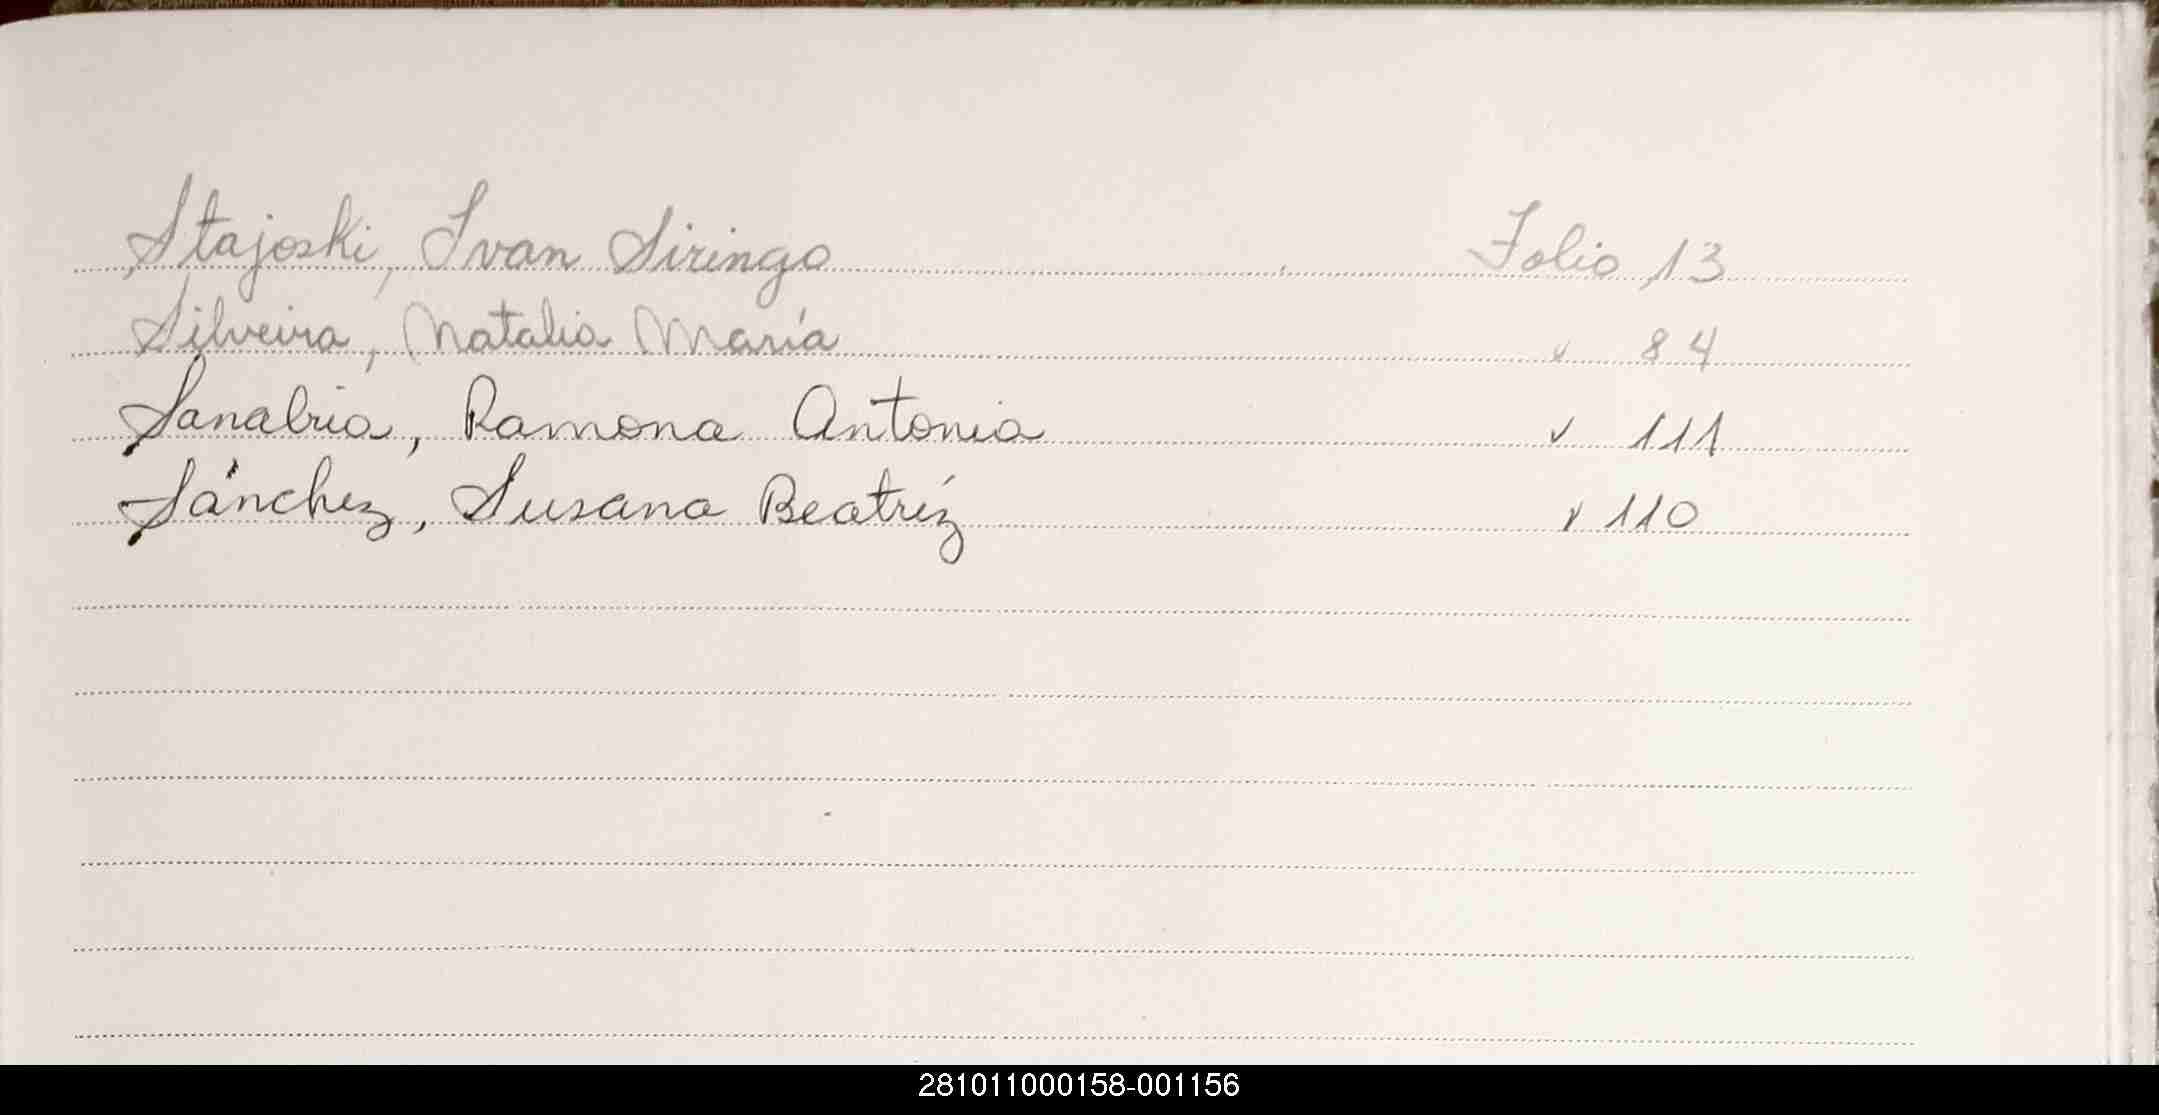 Stajoski, Ivan Siringo Folio 13
Silveira, Natalia María " 84
Sanabria, Ramona Antonia " 111
Sánchez, Susana Beatríz " 110
281011000158-001156